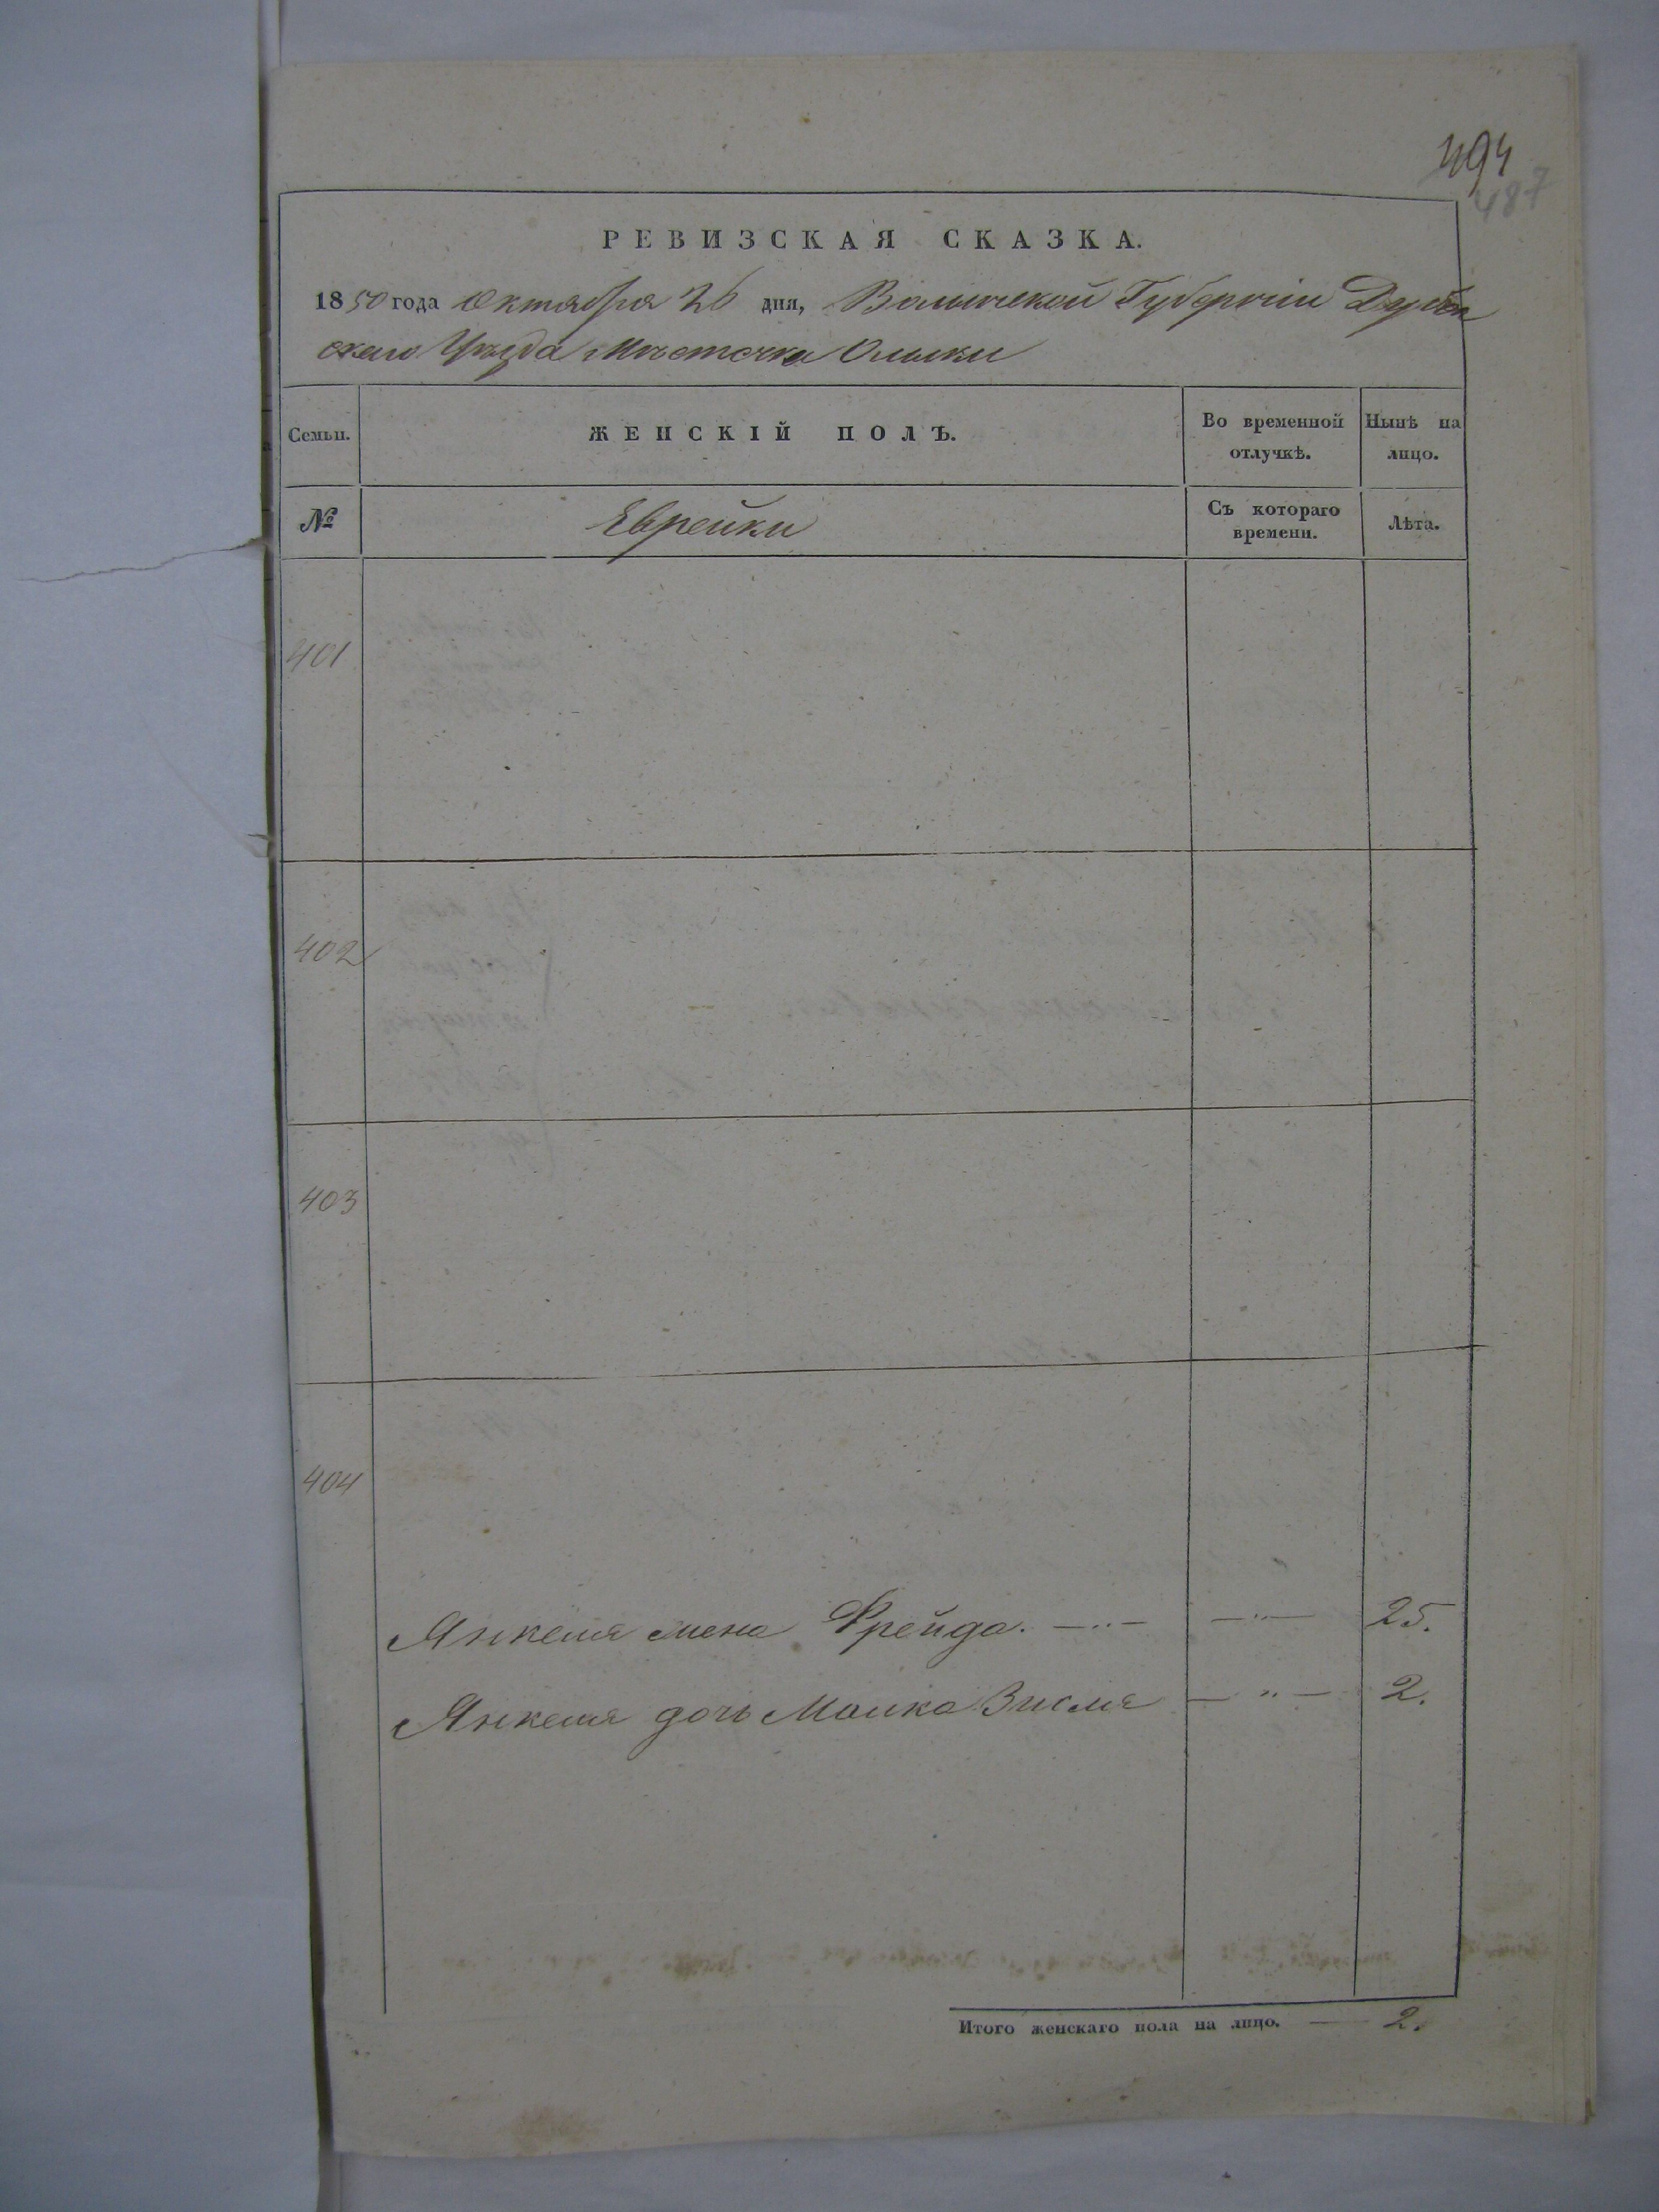 494
487
РЕВИЗСКАЯ СКАЗКА.
1850 года Октября 26 дня, Волынской Губерніи Дубен
скаго Уѣзда Мѣстечка Олыки
Семьи. ЖЕНСКІЙ ПОЛЪ. Во временной отлучкѣ. Нынѣ на лицо.
№ Еврейки Съ котораго времени. Лѣта.
401
402
403
404
Янкеля жена Фрейда. —"— —"— 25.
Янкеля дочь Малка Зисля — " — 2.
Итого женскаго пола на лицо. — 2.